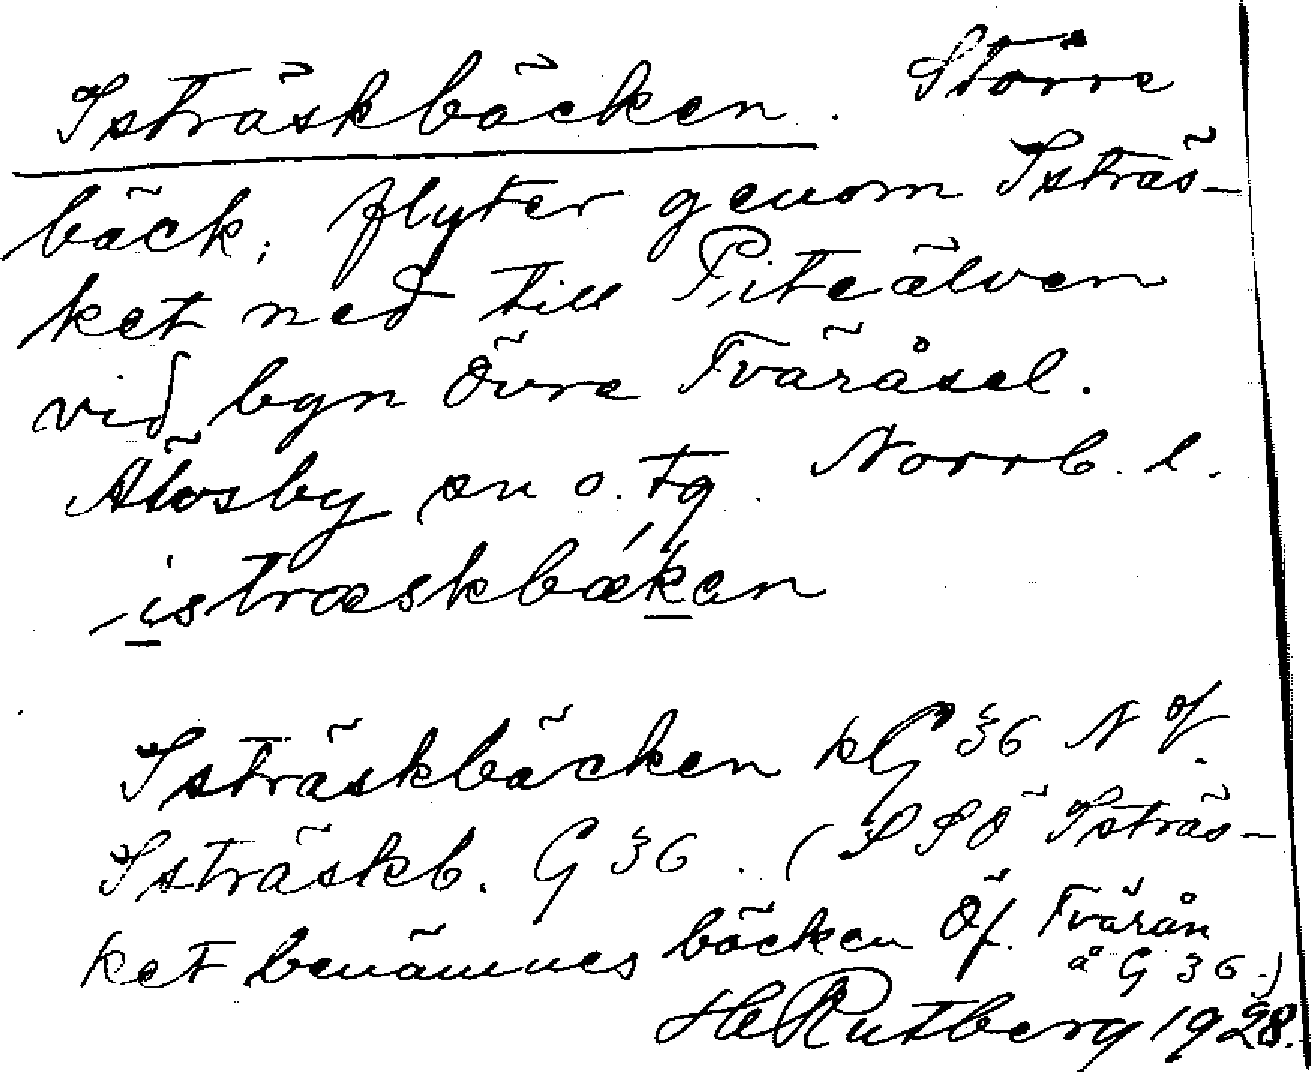 Isträskbäcken. Större
bäck; flyter genom Isträs-
ket ned till Piteälven
vid bgn Övre Tväråsel.
Älvsby sn o. tg. Norrb. l.
istræskbæken
Isträskbäcken kG 36 NV.
Isträskb. G 36. (SSÖ Isträs-
ket benämnes bäcken Öf. Tvärån
å G 36.)
HRutberg 1928.